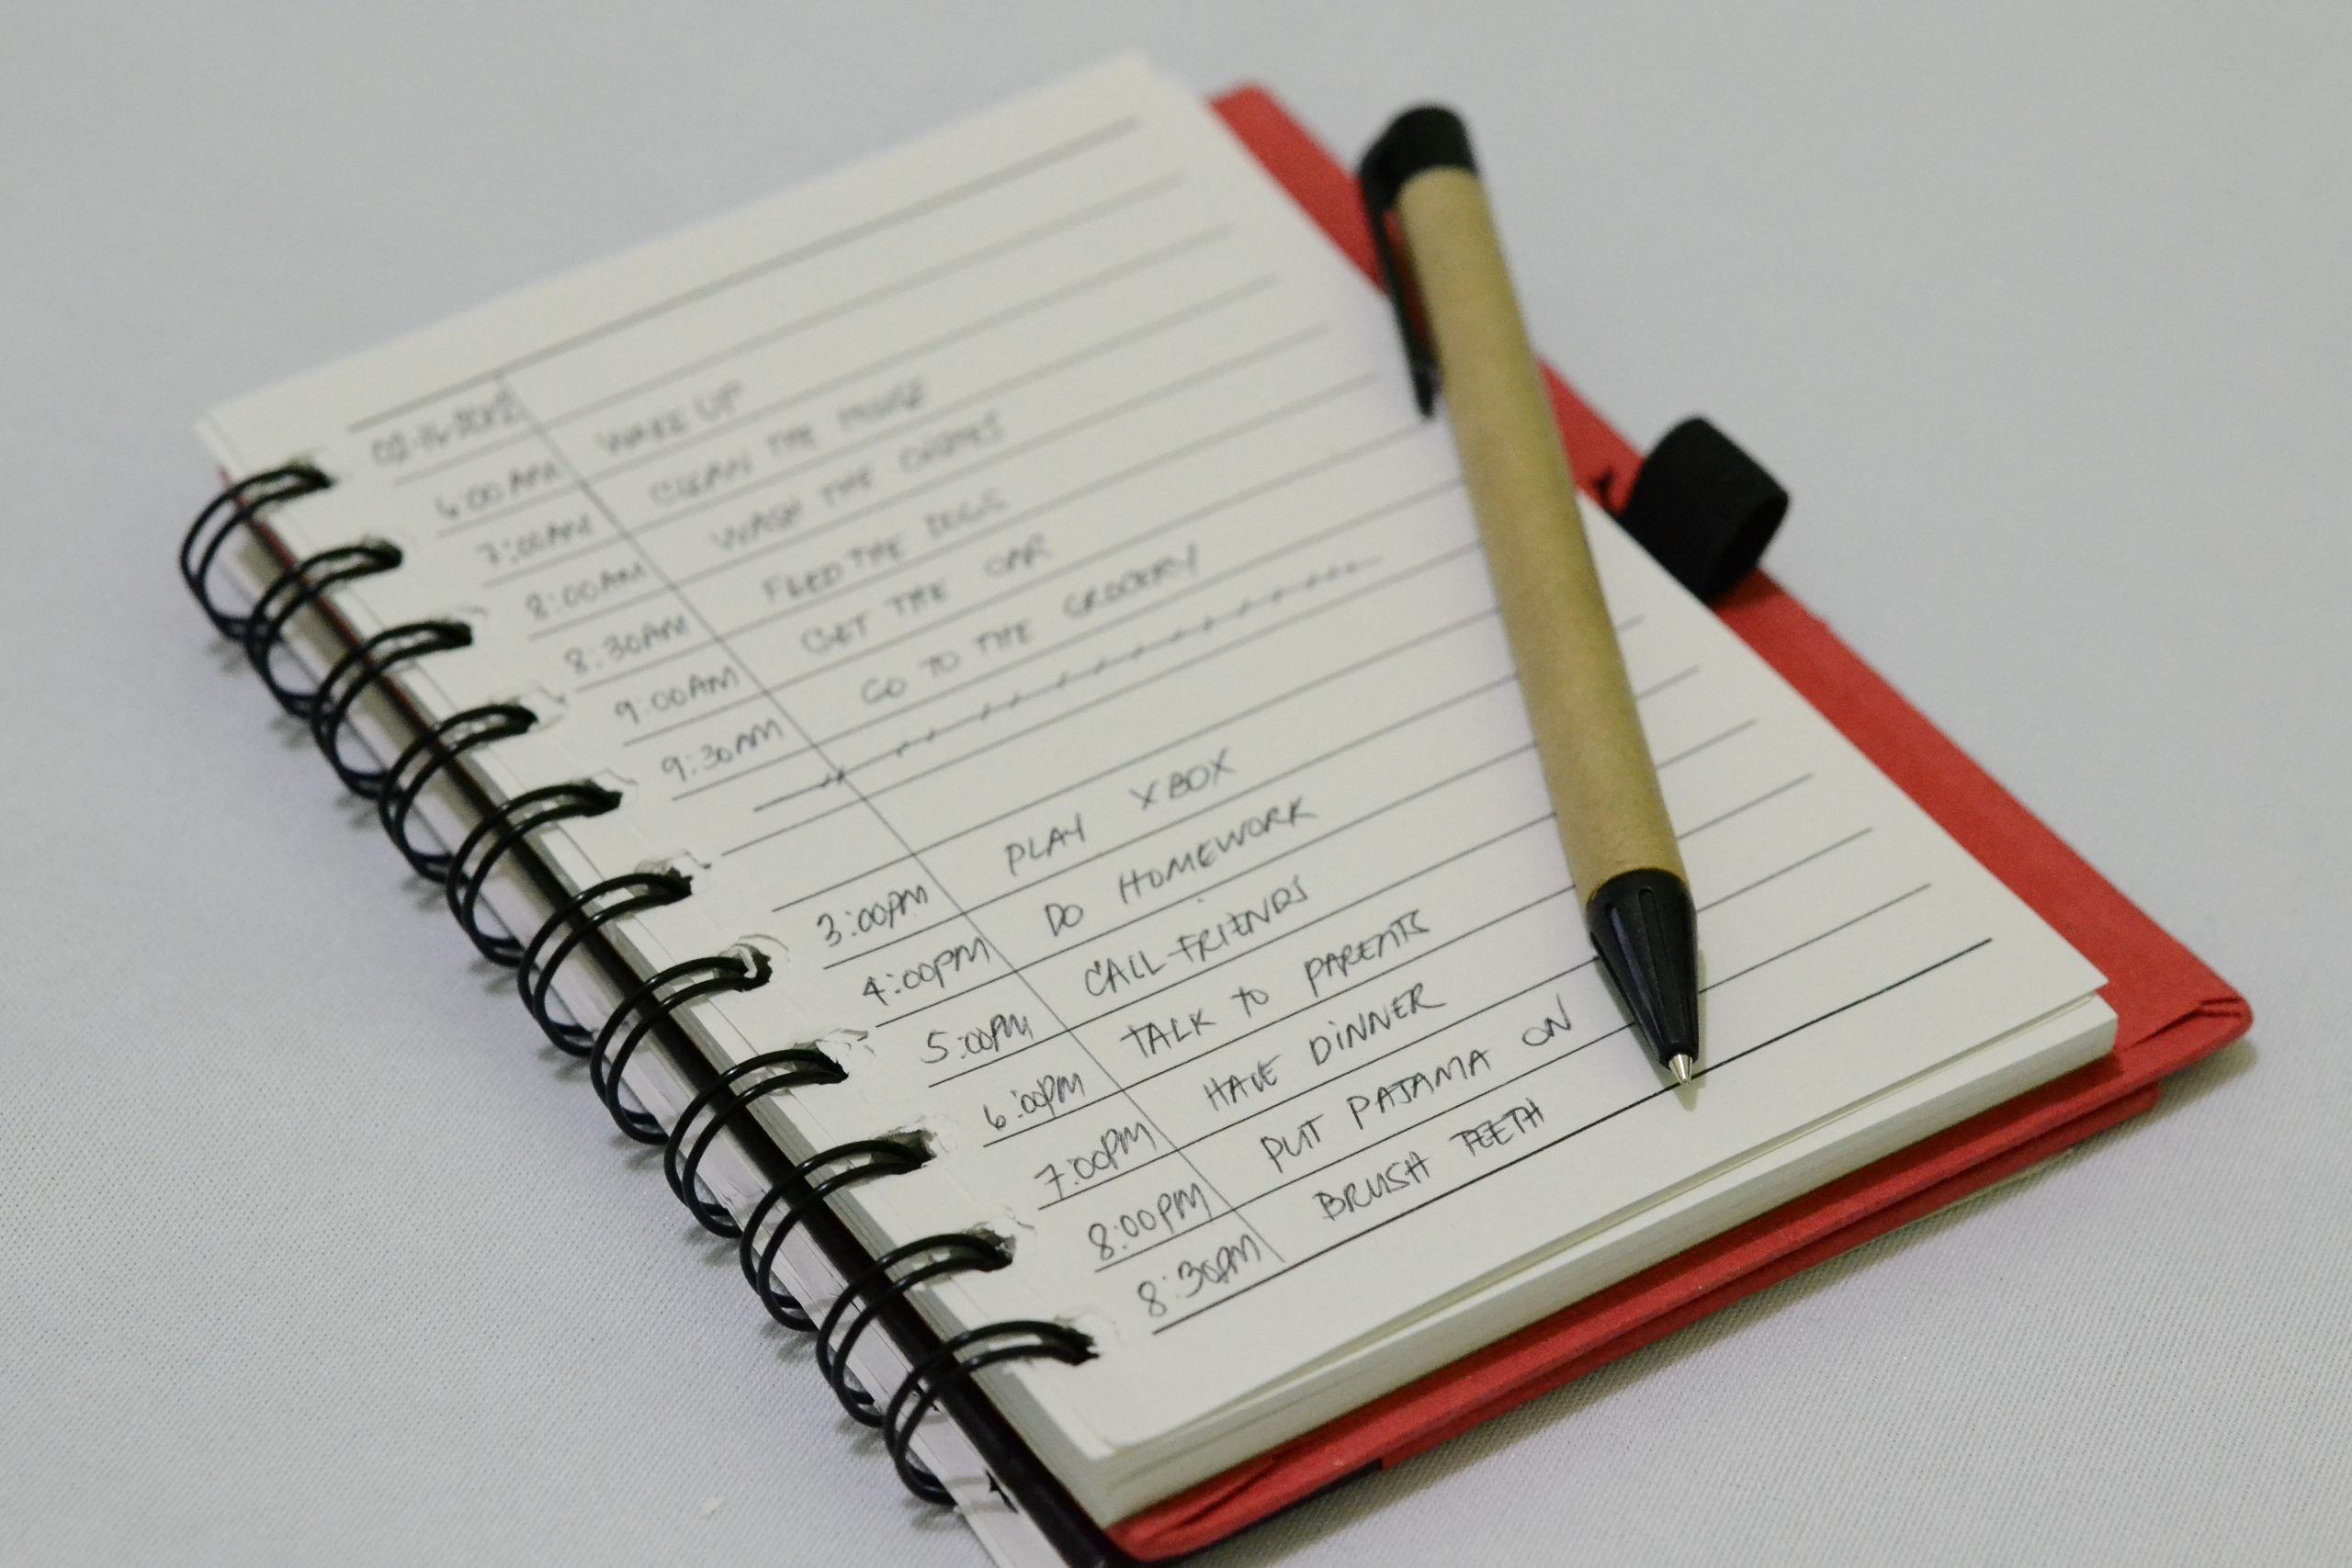 6:00AM WAKE UP
7:00AM CLEAN THE HOUSE
8:00AM WASH THE DISHES
8:30AM FEED THE DOGS
9:00AM GET THE CAR
9:30AM GO TO THE GROCERY
3:00PM PLAY XBOX
4:00PM DO HOMEWORK
5:00PM CALL FRIENDS
6:00PM TALK TO PARENTS
7:00PM HAVE DINNER
8:00PM PUT PAJAMA ON
8:30PM BRUSH TEETH